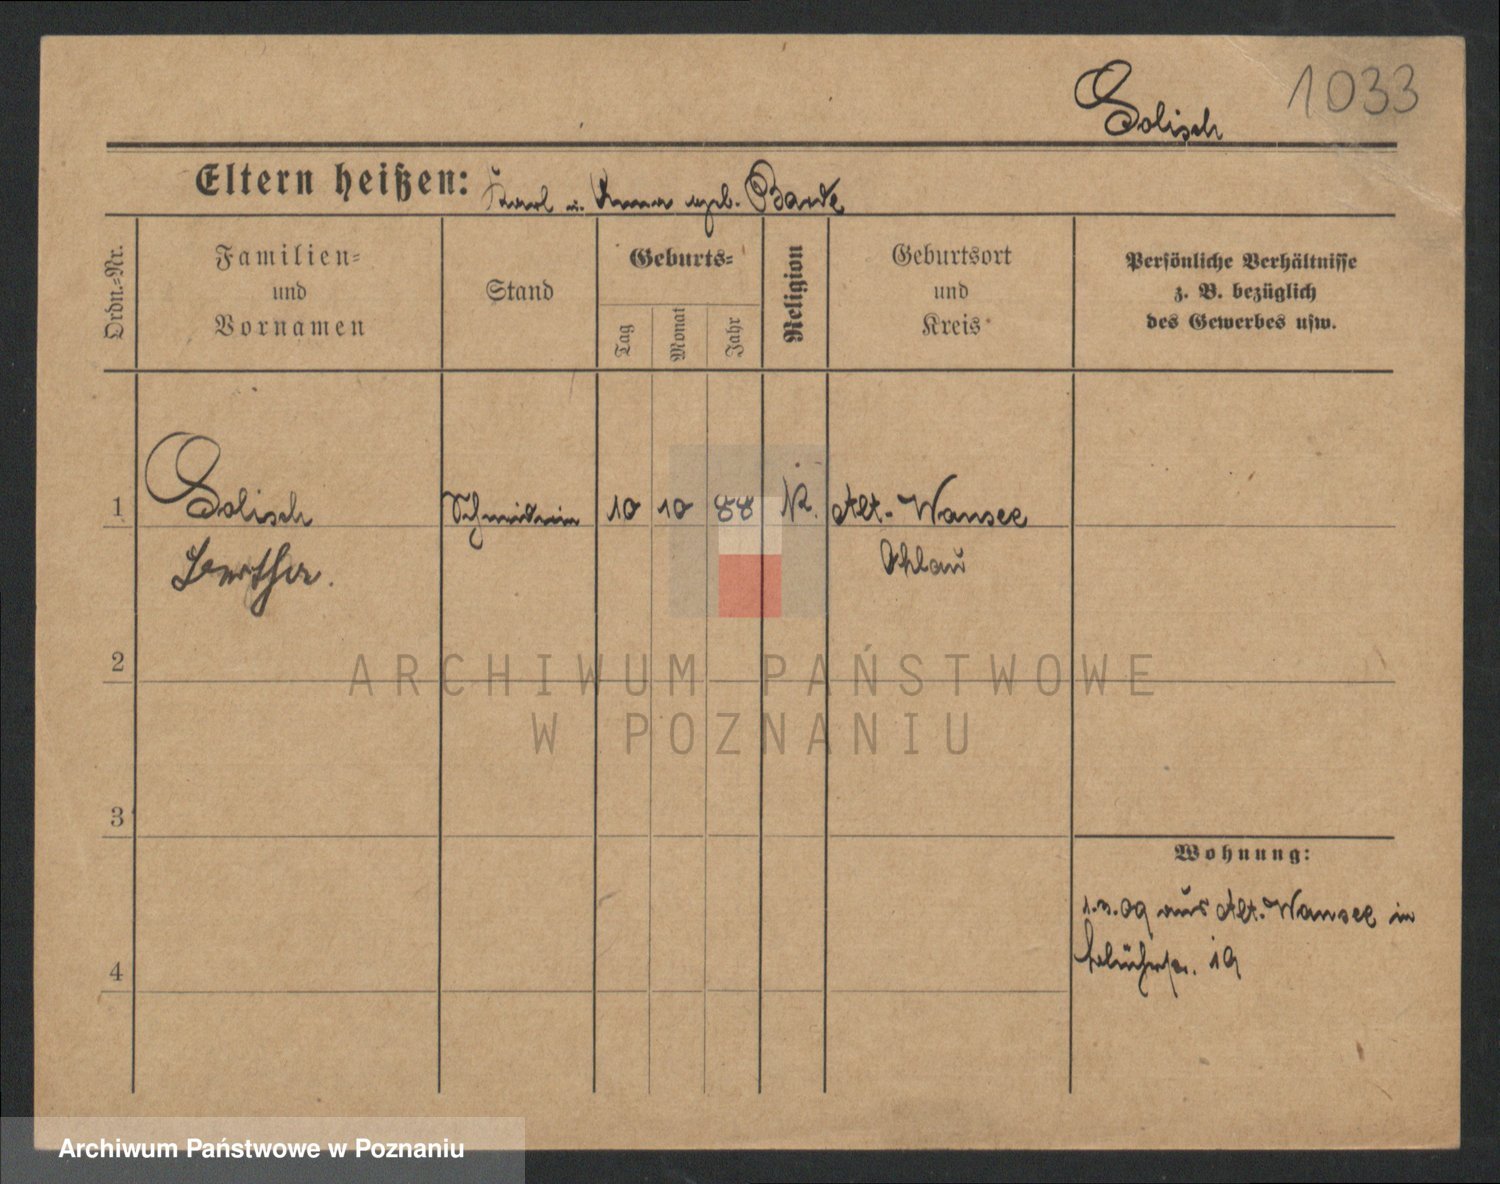 1033
Solisch
Eltern heißen: Karl u. Anna geb.
Ordn.=Nr.
Familien=
und
Vornamen
Stand
Geburts=
Tag
Monat
Jahr
Religion
Geburtsort
und
Kreis
Persönliche Verhältnisse
z. B. bezüglich
des Gewerbes usw.
1 Solisch Schneiderin 10 10 88 Alt-Wansee
Bertha. Ohlau
2
3
Wohnung:
09 aus Alt-Wansee in
19
4
ARCHIWUM PAŃSTWOWE
W POZNANIU
Archiwum Państwowe w Poznaniu